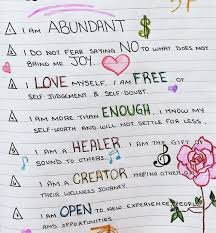 I AM ABUNDANT
I DO NOT FEAR SAYING NO TO WHAT DOES NOT
BRING ME JOY.
I LOVE MYSELF. I AM FREE OF
SELF-JUDGEMENT & SELF-DOUBT.
I AM MORE THAN ENOUGH. I KNOW MY
SELF-WORTH AND WILL NOT SETTLE FOR LESS.
I AM A HEALER I AM THE GIFT OF
SOUND TO OTHERS.
I AM A CREATOR HELPING OTHERS ON
THEIR WELLNESS JOURNEY.
I AM OPEN TO NEW EXPERIENCE, PEOPLE
AND OPPORTUNITIES